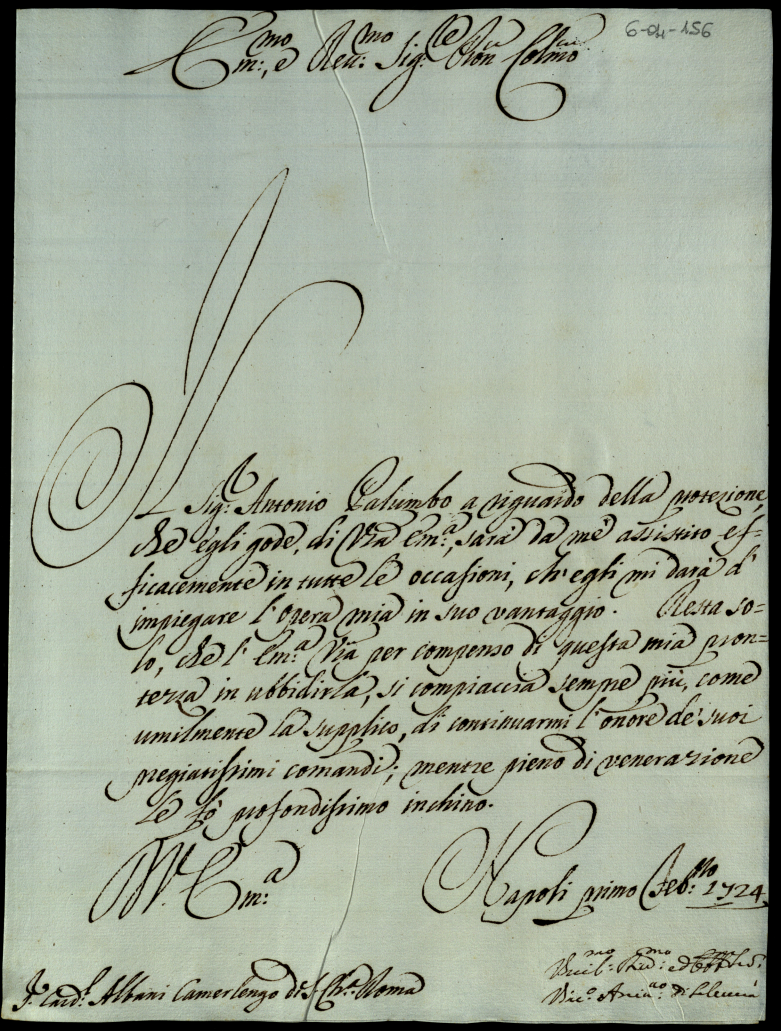 6-04-156
Em:mo, e Reu:mo Sig:re Pron Colmo
Il Sig:r Antonio Palumbo a riguardo della protezione,
che egli gode, di Vra Em:a, sarà da mè assistito ef-
ficacemente in tutte le occasioni, ch'egli mi darà d'
impiegare l'opera mia in suo vantaggio. Resta so-
lo, che l'Em:a Vra per compenso di questa mia pron-
tezza in ubbidirla, si compiaccia sempre più, come
umilmente la supplico, di continuarmi l'onore de' suoi
pregiatissimi comandi; mentre pieno di venerazione
le fò profondissimo inchino.
Vr̃a Em:a Napoli primo Feb:ro 1724.
Umil:mo Deu:mo ed
S:r Card:l Albani Camerlengo di S. Ch:a Roma
Vinc:o